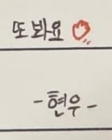 또 봐요
-현우-